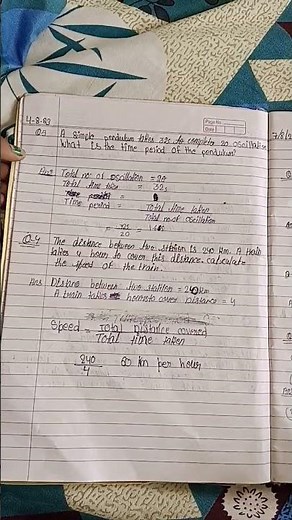 Page No.
Date
4-8-23
Q3 A simple pendulum takes 32s to complete 20 oscillation
What is the time period of the pendulum?
Ans Total no. of oscillation = 20
Total time = 32s
Time period = Total time taken
Total no. of oscillation
= 32
20
Q-4 The distance between two station is 240 Km. A train
takes 4 hours to cover this distance. calculate
the speed of the train.
Ans Distance between two station = 240km
A train takes hours to cover Distance = 4
Speed = Total Distance covered
Total time taken
240
4
60 km per hour
7/8/2